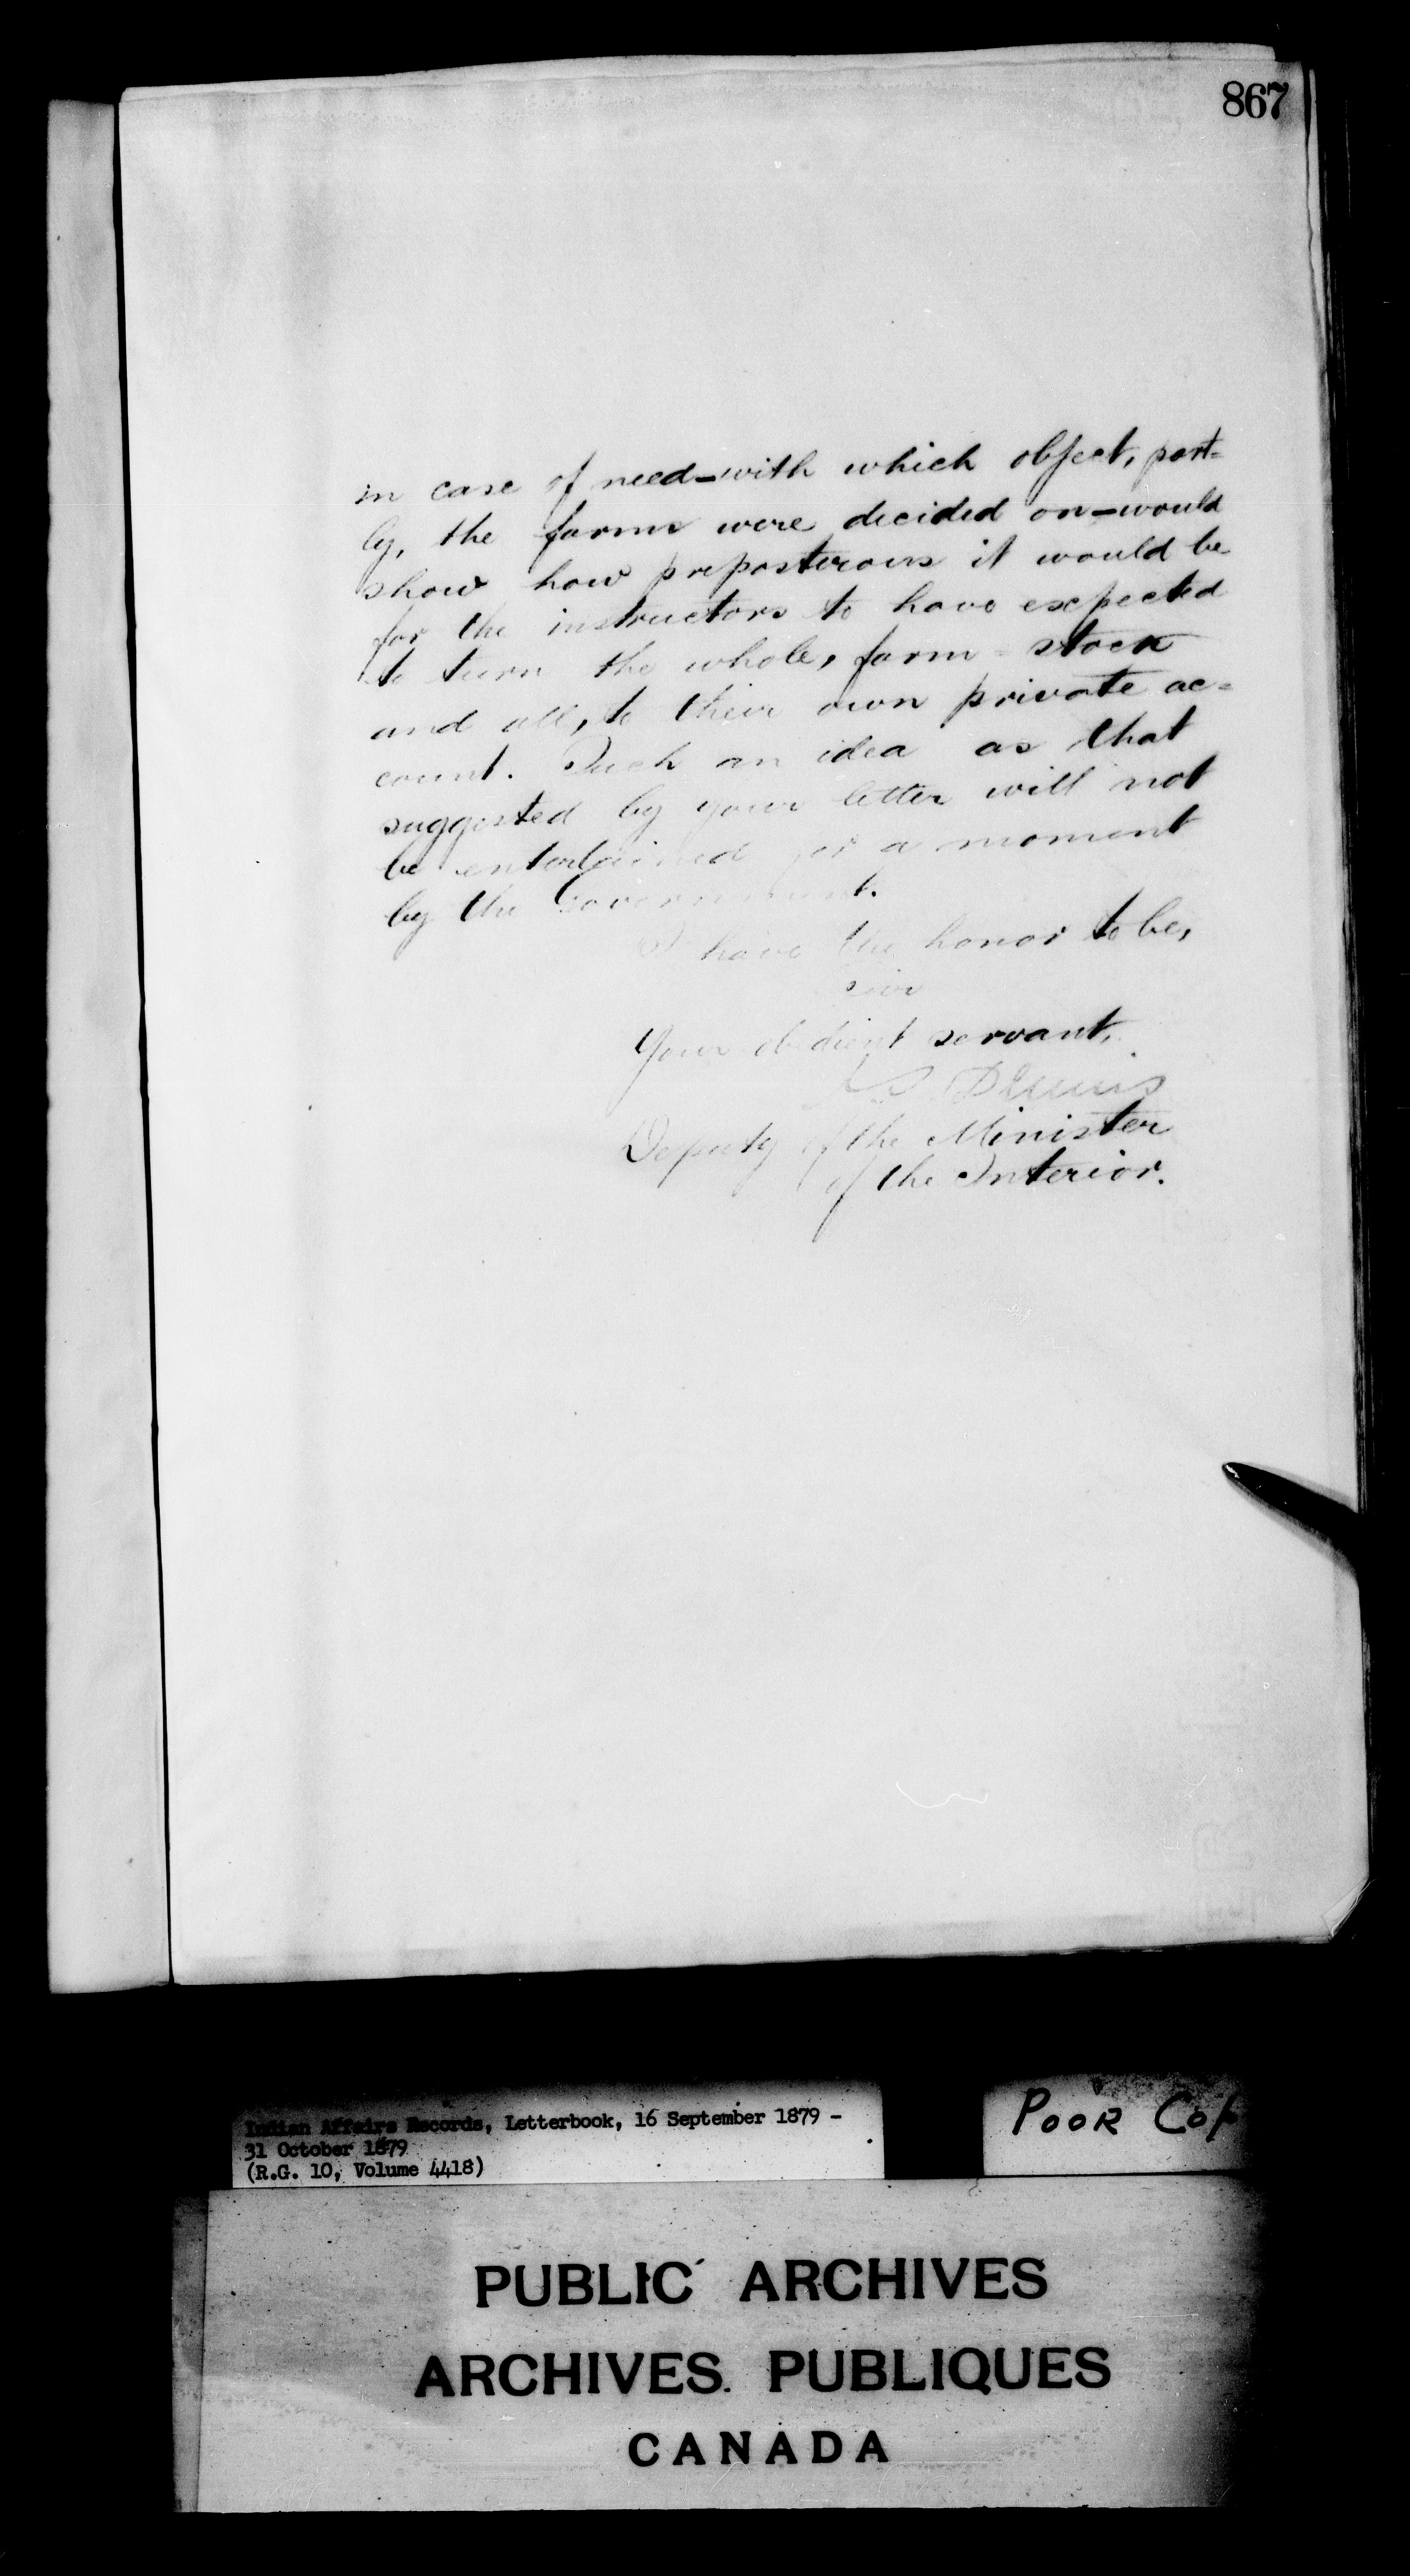 867
in case of need—with which object, part=
ly, the farms were decided on—would
show how preposterous it would be
for the instructors to have expected
to turn the whole, farm = stock
and all, to their own private ac=
count. Such an idea as that
suggested by your letter will not
be entertained for a moment
by the Government.
I have the honor to be,
Sir
Your obedient servant,
Dennis
Deputy of the Minister
of the Interior.
Indian Affairs Records, Letterbook, 16 September 1879 -
31 October 1879
(R.G. 10, Volume 4418)
POOR COP
PUBLIC ARCHIVES
ARCHIVES PUBLIQUES
CANADA